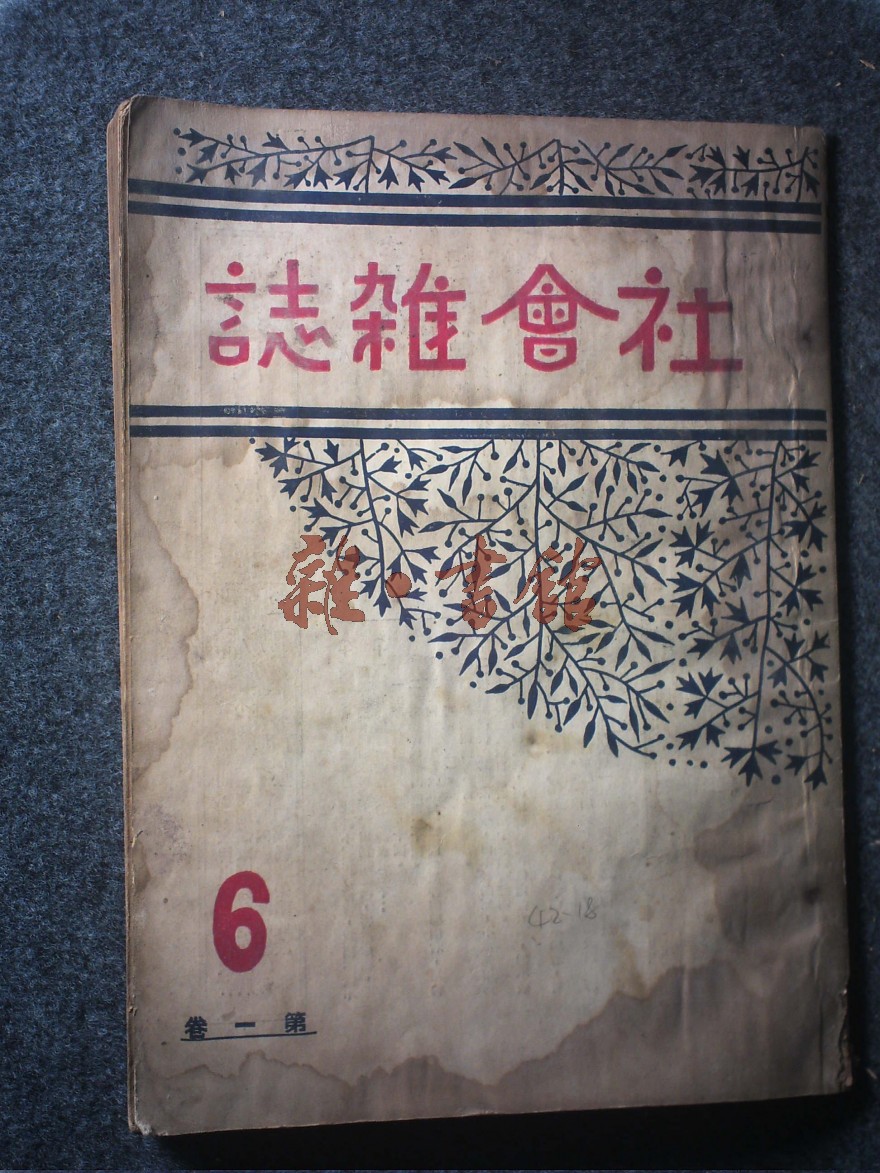 社會雑誌
雜·書館
6
42-18
第一卷